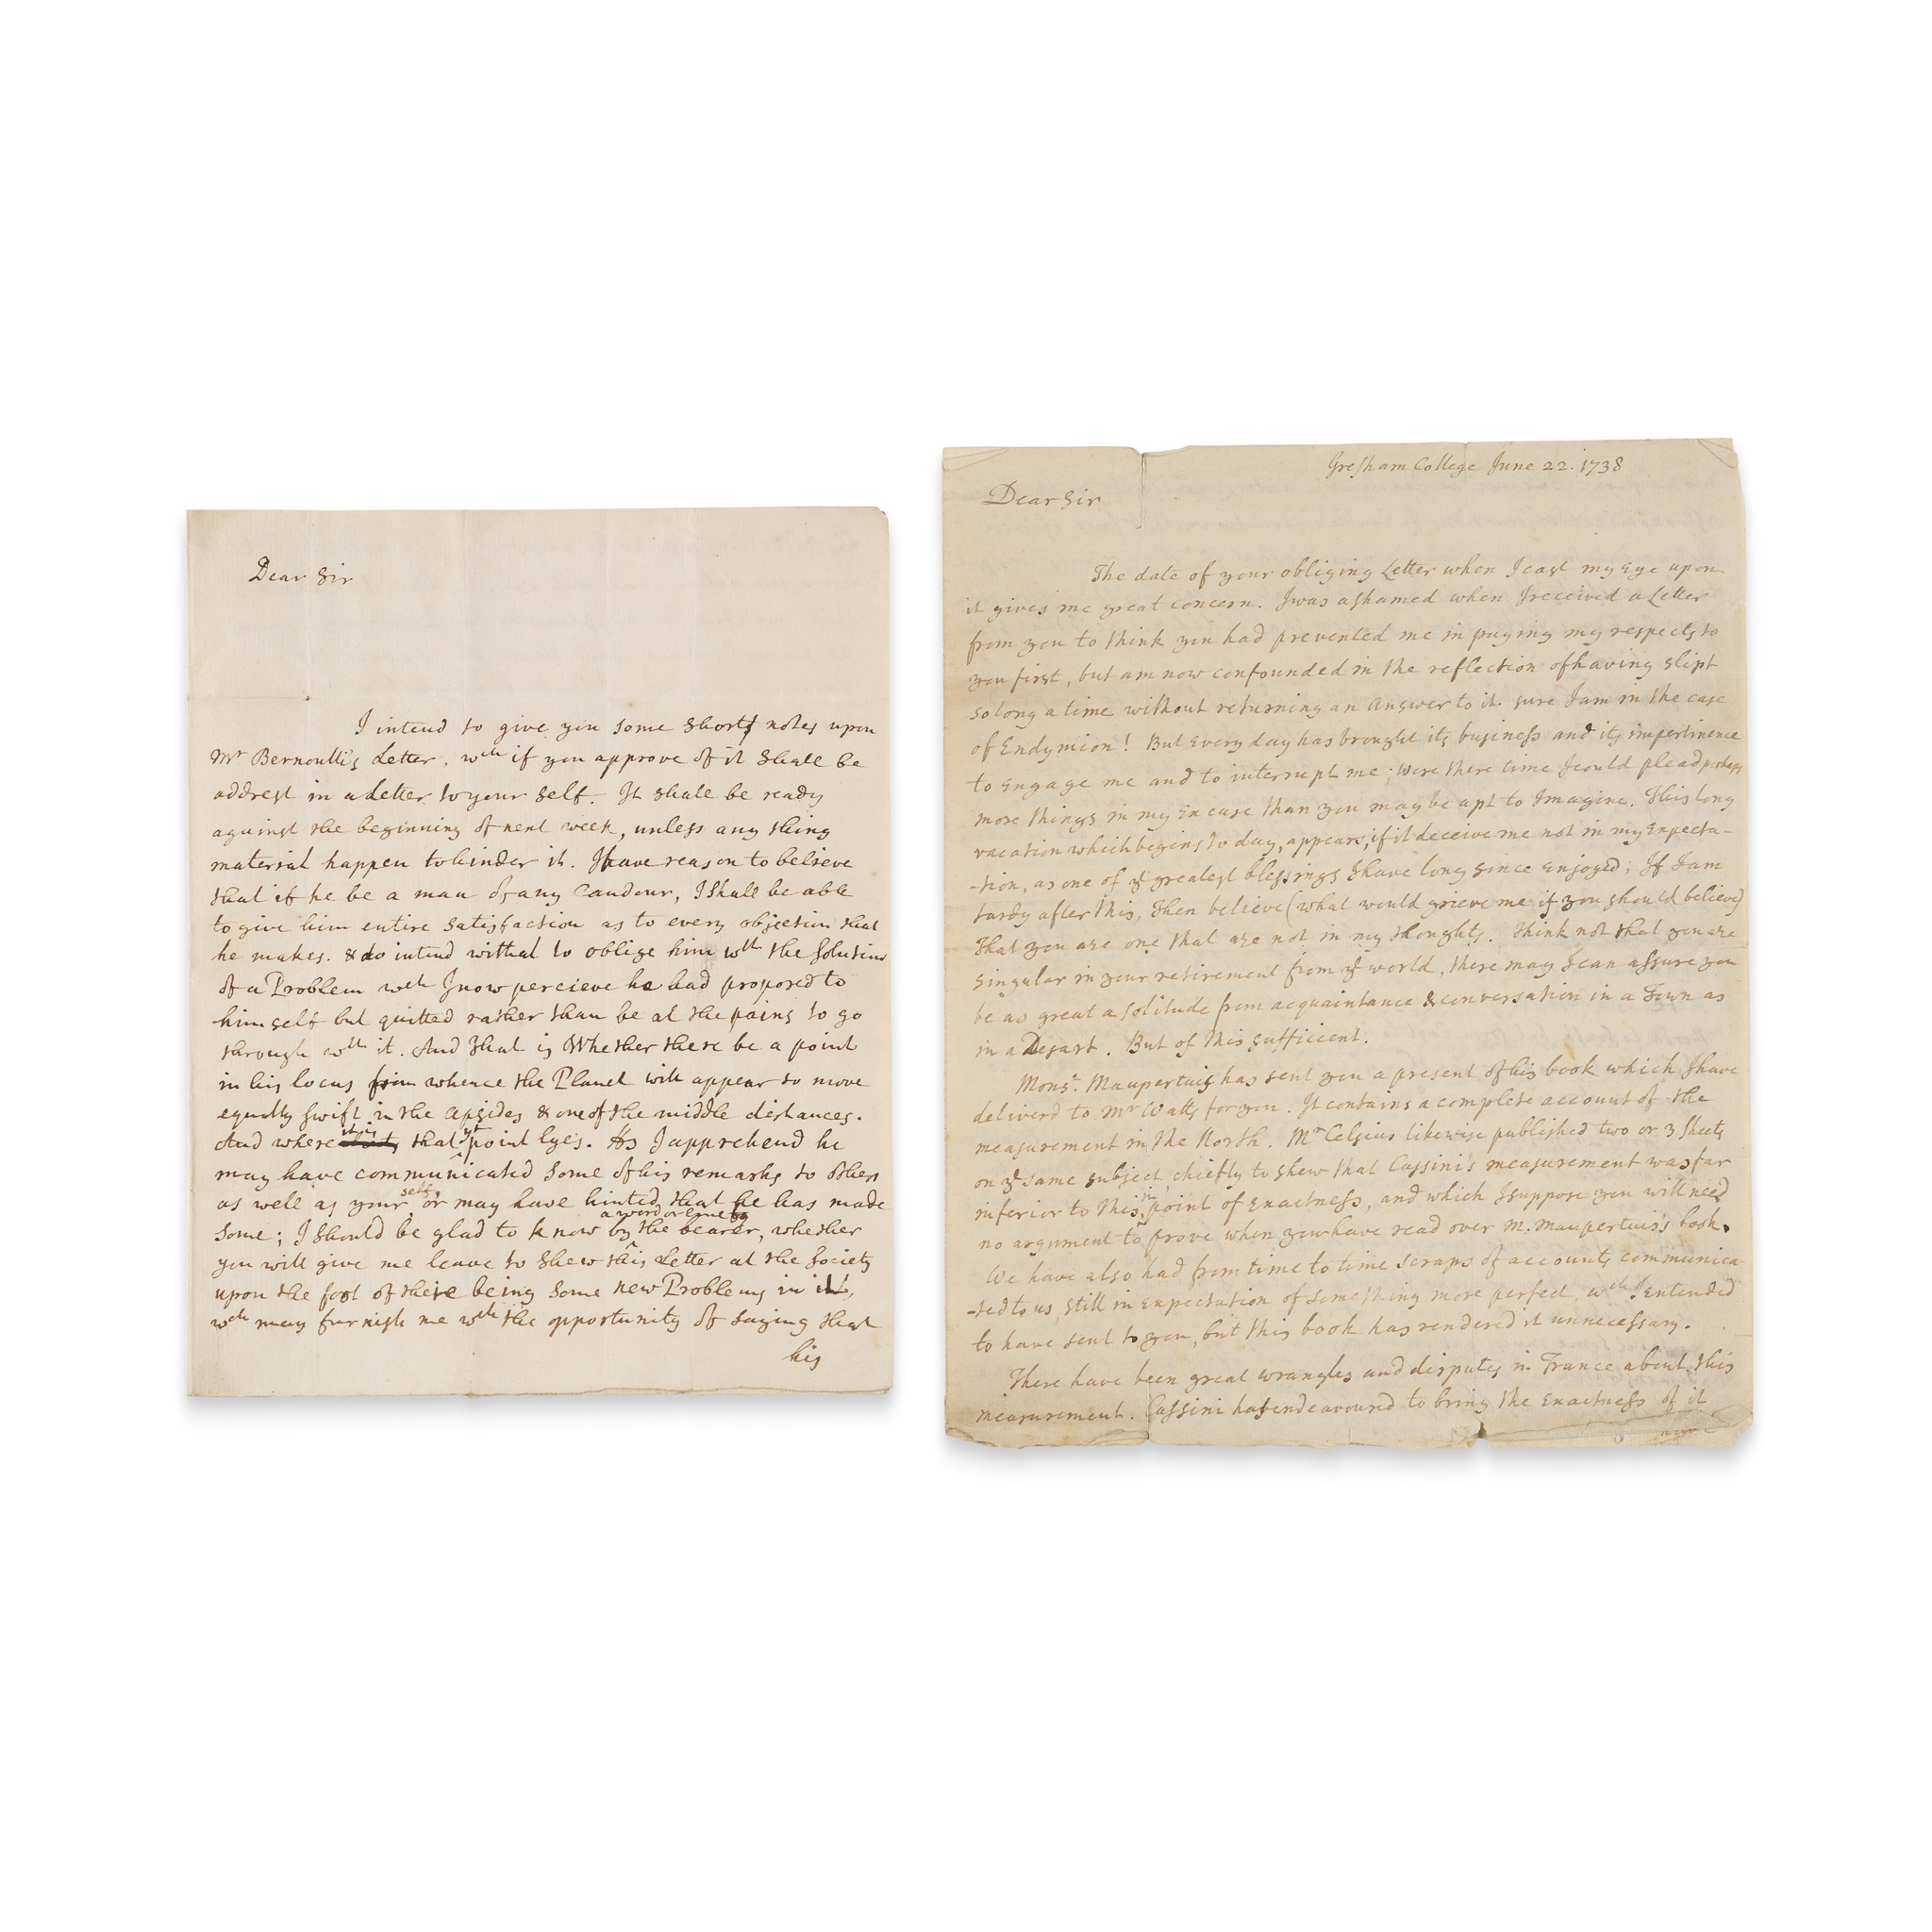 Dear Sir
I intend to give you some short notes upon
Mr Bernoulli's Letter, wch if you approve of it shall be
addrest in a Letter to your self. It shall be ready
against the beginning of next week, unless any thing
material happen to hinder it. I have reason to believe
that if he be a man of any Candour, I shall be able
to give him entire satisfaction as to every objection that
he makes. & do intend withal to oblige him wth the Solution
of a Problem wch I now percieve he had proposed to
himself but quitted rather than be at the pains to go
through wth it. And that is Whether there be a point
in his locus from whence the Planet will appear to move
equally swift in the Apsides & one of the middle distances.
And where it is that yt point lyes. As I apprehend he
may have communicated some of his remarks to others
as well as your self, or may have hinted that he has made
some; I should be glad to know by a word or line by the bearer, whether
you will give me leave to shew this Letter at the Society
upon the foot of there being some new Problems in it,
wch may furnish me wth the opportunity of saying that
his
Gresham College June 22. 1738
Dear Sir
The date of your obliging Letter when I cast my Eye upon
it gives me great concern. I was ashamed when I received a Letter
from you to think you had prevented me in paying my respects to
you first, but am now confounded in the reflection of having slipt
so long a time without returning an Answer to it. sure I am in the case
of Endymion! But Every day has brought its business and its impertinence
to Engage me and to interrupt me; were there time I could plead perhaps
more things in my in case than you may be apt to Imagine. This long
vacation which begins to day, appears, if it deceive me not in my Expecta-
-tion, as one of ye greatest blessings I have long since enjoyed; If I am
tardy after this, then believe (what would grieve me if you should believe)
That you are one that are not in my thoughts. Think not that you are
singular in your retirement from ye world, there may I can assure you
be as great a solitude from acquaintance & conversation in a Town as
in a Desart. But of this sufficient.
Monsr. Maupertuis has sent you a present of his book which I have
deliverd to Mr Watts for you. It contains a complete account of the
measurement in the North. Mr Celsius likewise published two or 3 sheets
on ye same subject, chiefly to shew that Cassini's measurement was far
inferior to this in point of Exactness, and which I suppose you will need
no argument to prove when you have read over M. Maupertuis's book.
We have also had from time to time scraps of accounts communica-
-ted to us, still in Expectation of something more perfect, wch I entended
to have sent to you, but this book has rendered it unnecessary.
There have been great wrangles and disputes in France about this
measurement. Cassini has endeavoured to bring the Exactness of it